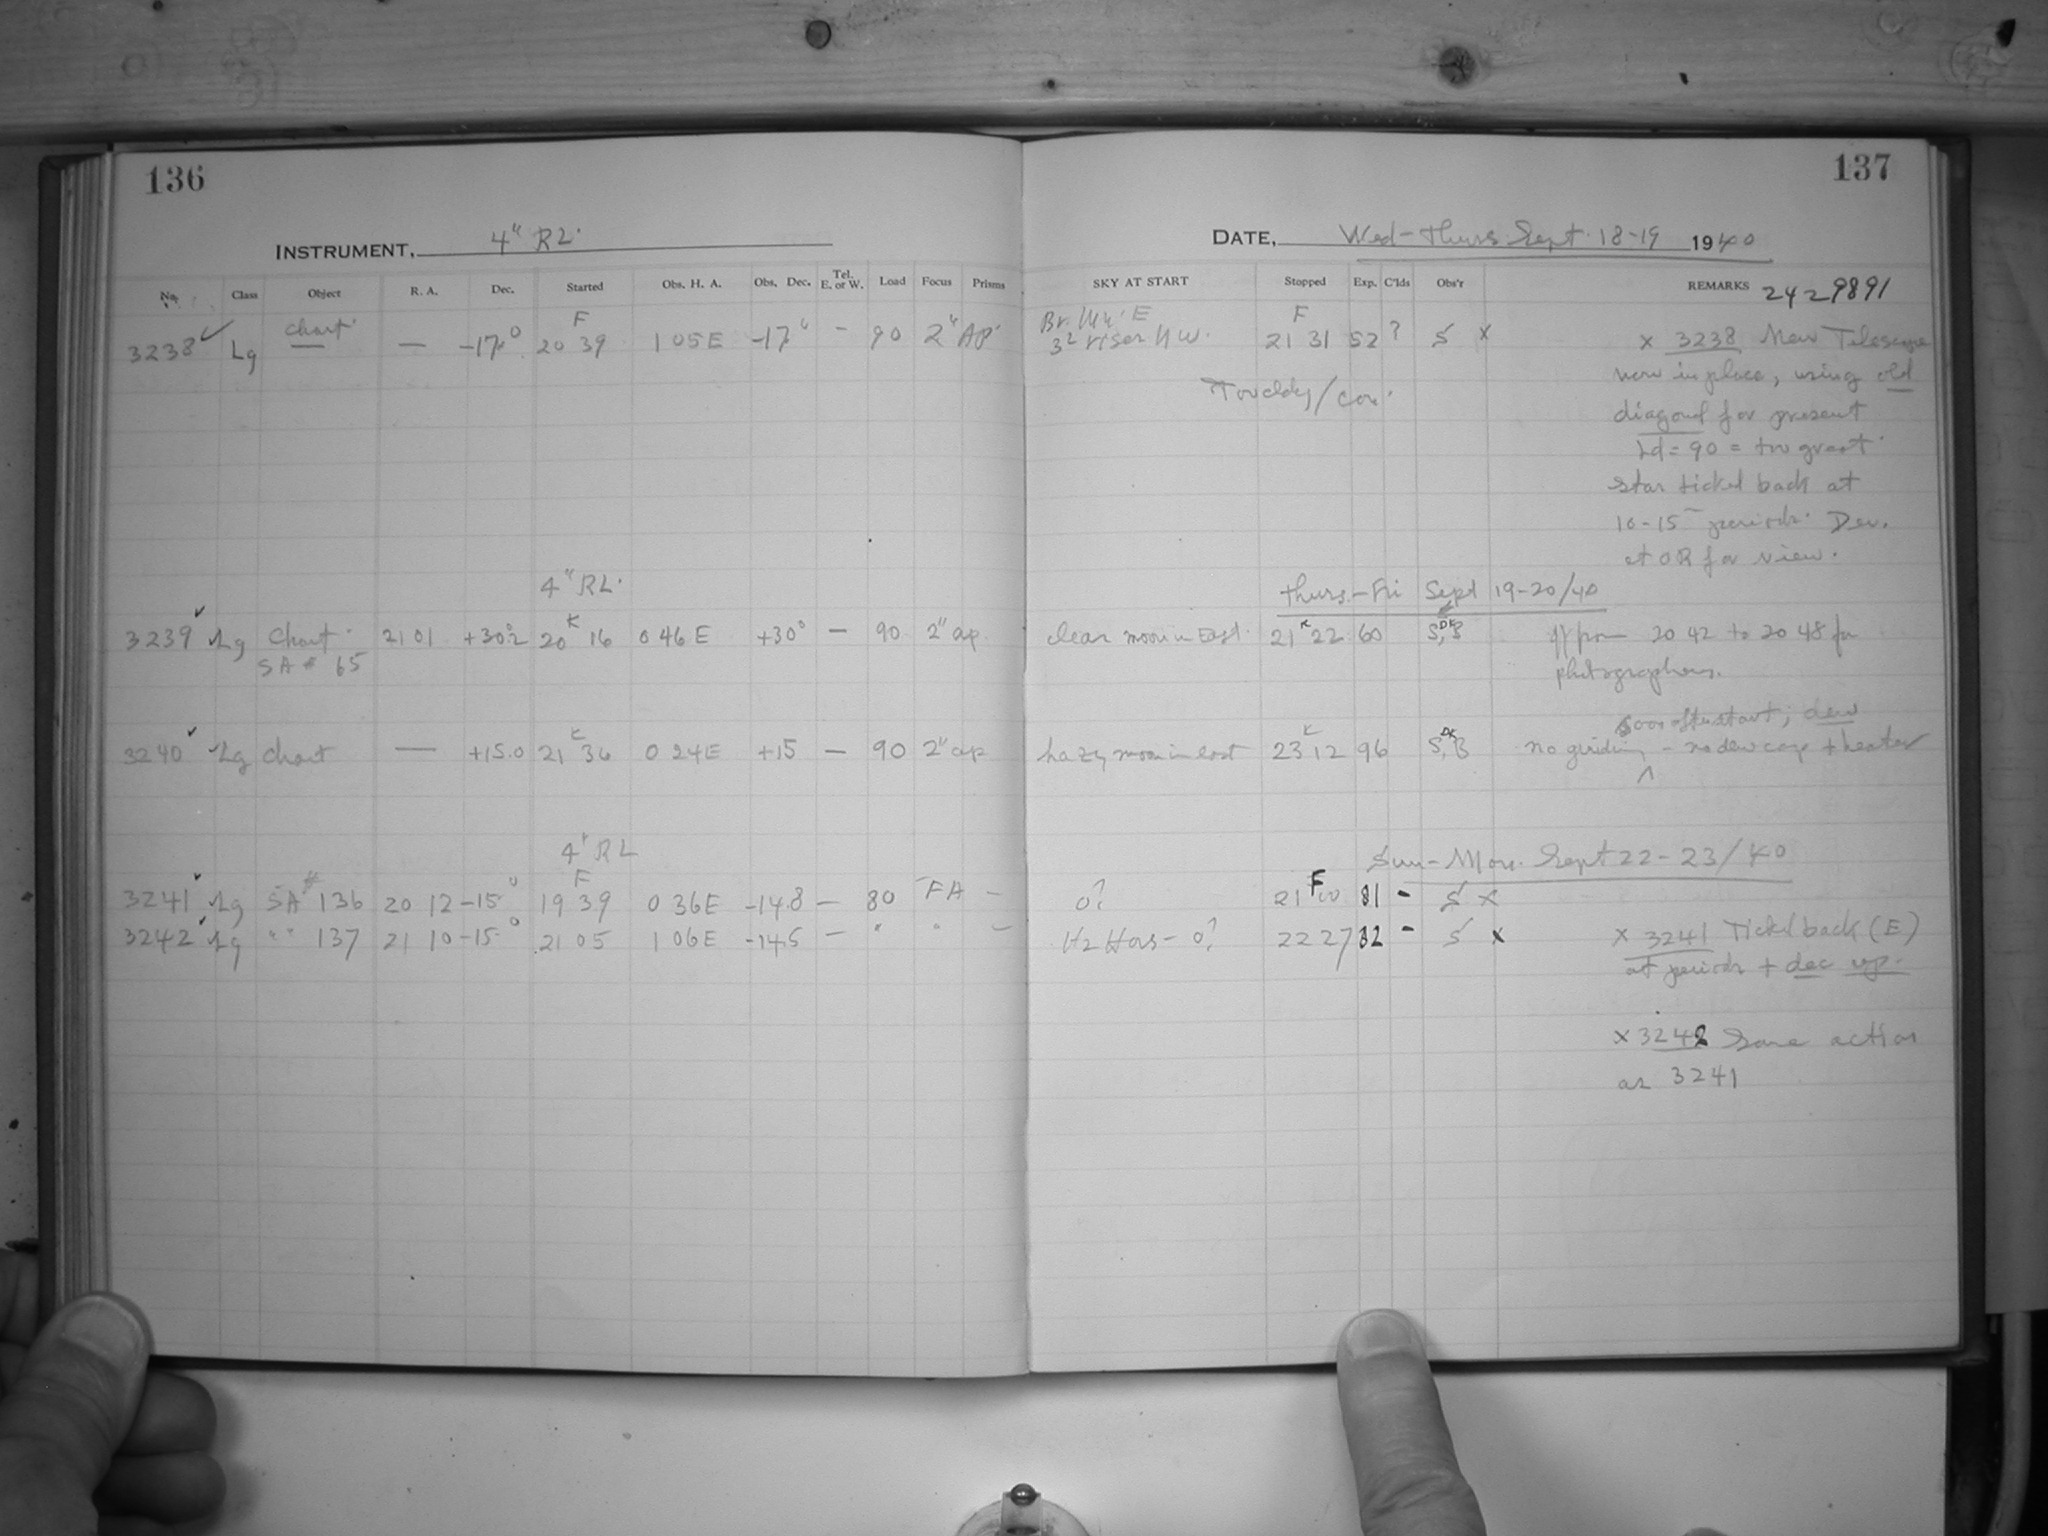 136
137
INSTRUMENT, 4" RL.
DATE, Wed-Thurs Sept. 18-19 1940
No. Class Object R. A. Dec. Started Obs. H. A. Obs. Dec. Tel. E. or W. Load Focus Prisms SKY AT START Stopped Exp. C'lds Obs'r REMARKS 2429891
3238 ✓ Lg Chart — -17.0° F 20 39 1 05 E -17° - 90 2" Ap. Br. E 3 NW. F 21 31 52 ? S x
x 3238 New Telescope
now in place, using old
diagonal for present
Ld = 90 = too great.
Star ticked back at
10-15 periods. Dec.
at OR for view.
4" RL.
Thurs.-Fri Sept 19-20/40
3239 ✓ Lg Chart. 21 01 +30.2 K 20 16 0 46 E +30° — 90 2" ap. clear moon in East. K 21 22 60 S, B DK 20 42 to 20 48 for
SA # 65
photographers.
soon after start; dew
3240 ✓ Lg chart — +15.0 K 21 36 0 24 E +15 — 90 2" ap hazy moon in east K 23 12 96 S, B DK no guiding - no dew cap + heater
4" RL
Sun-Mon. Sept 22-23/40
3241 ✓ Lg SA # 136 20 12 -15° F 19 39 0 36 E -14.8 — 80 FA — 0? 21 F 00 81 - S x
3242 ✓ Lg " " 137 21 10 -15.° 21 05 1 06 E -14.5 — " " — Hz Hors - 0? 22 27 82 - S x
x 3241 Tickd back (E)
at periods + dec up.
x 3242 Same action
as 3241